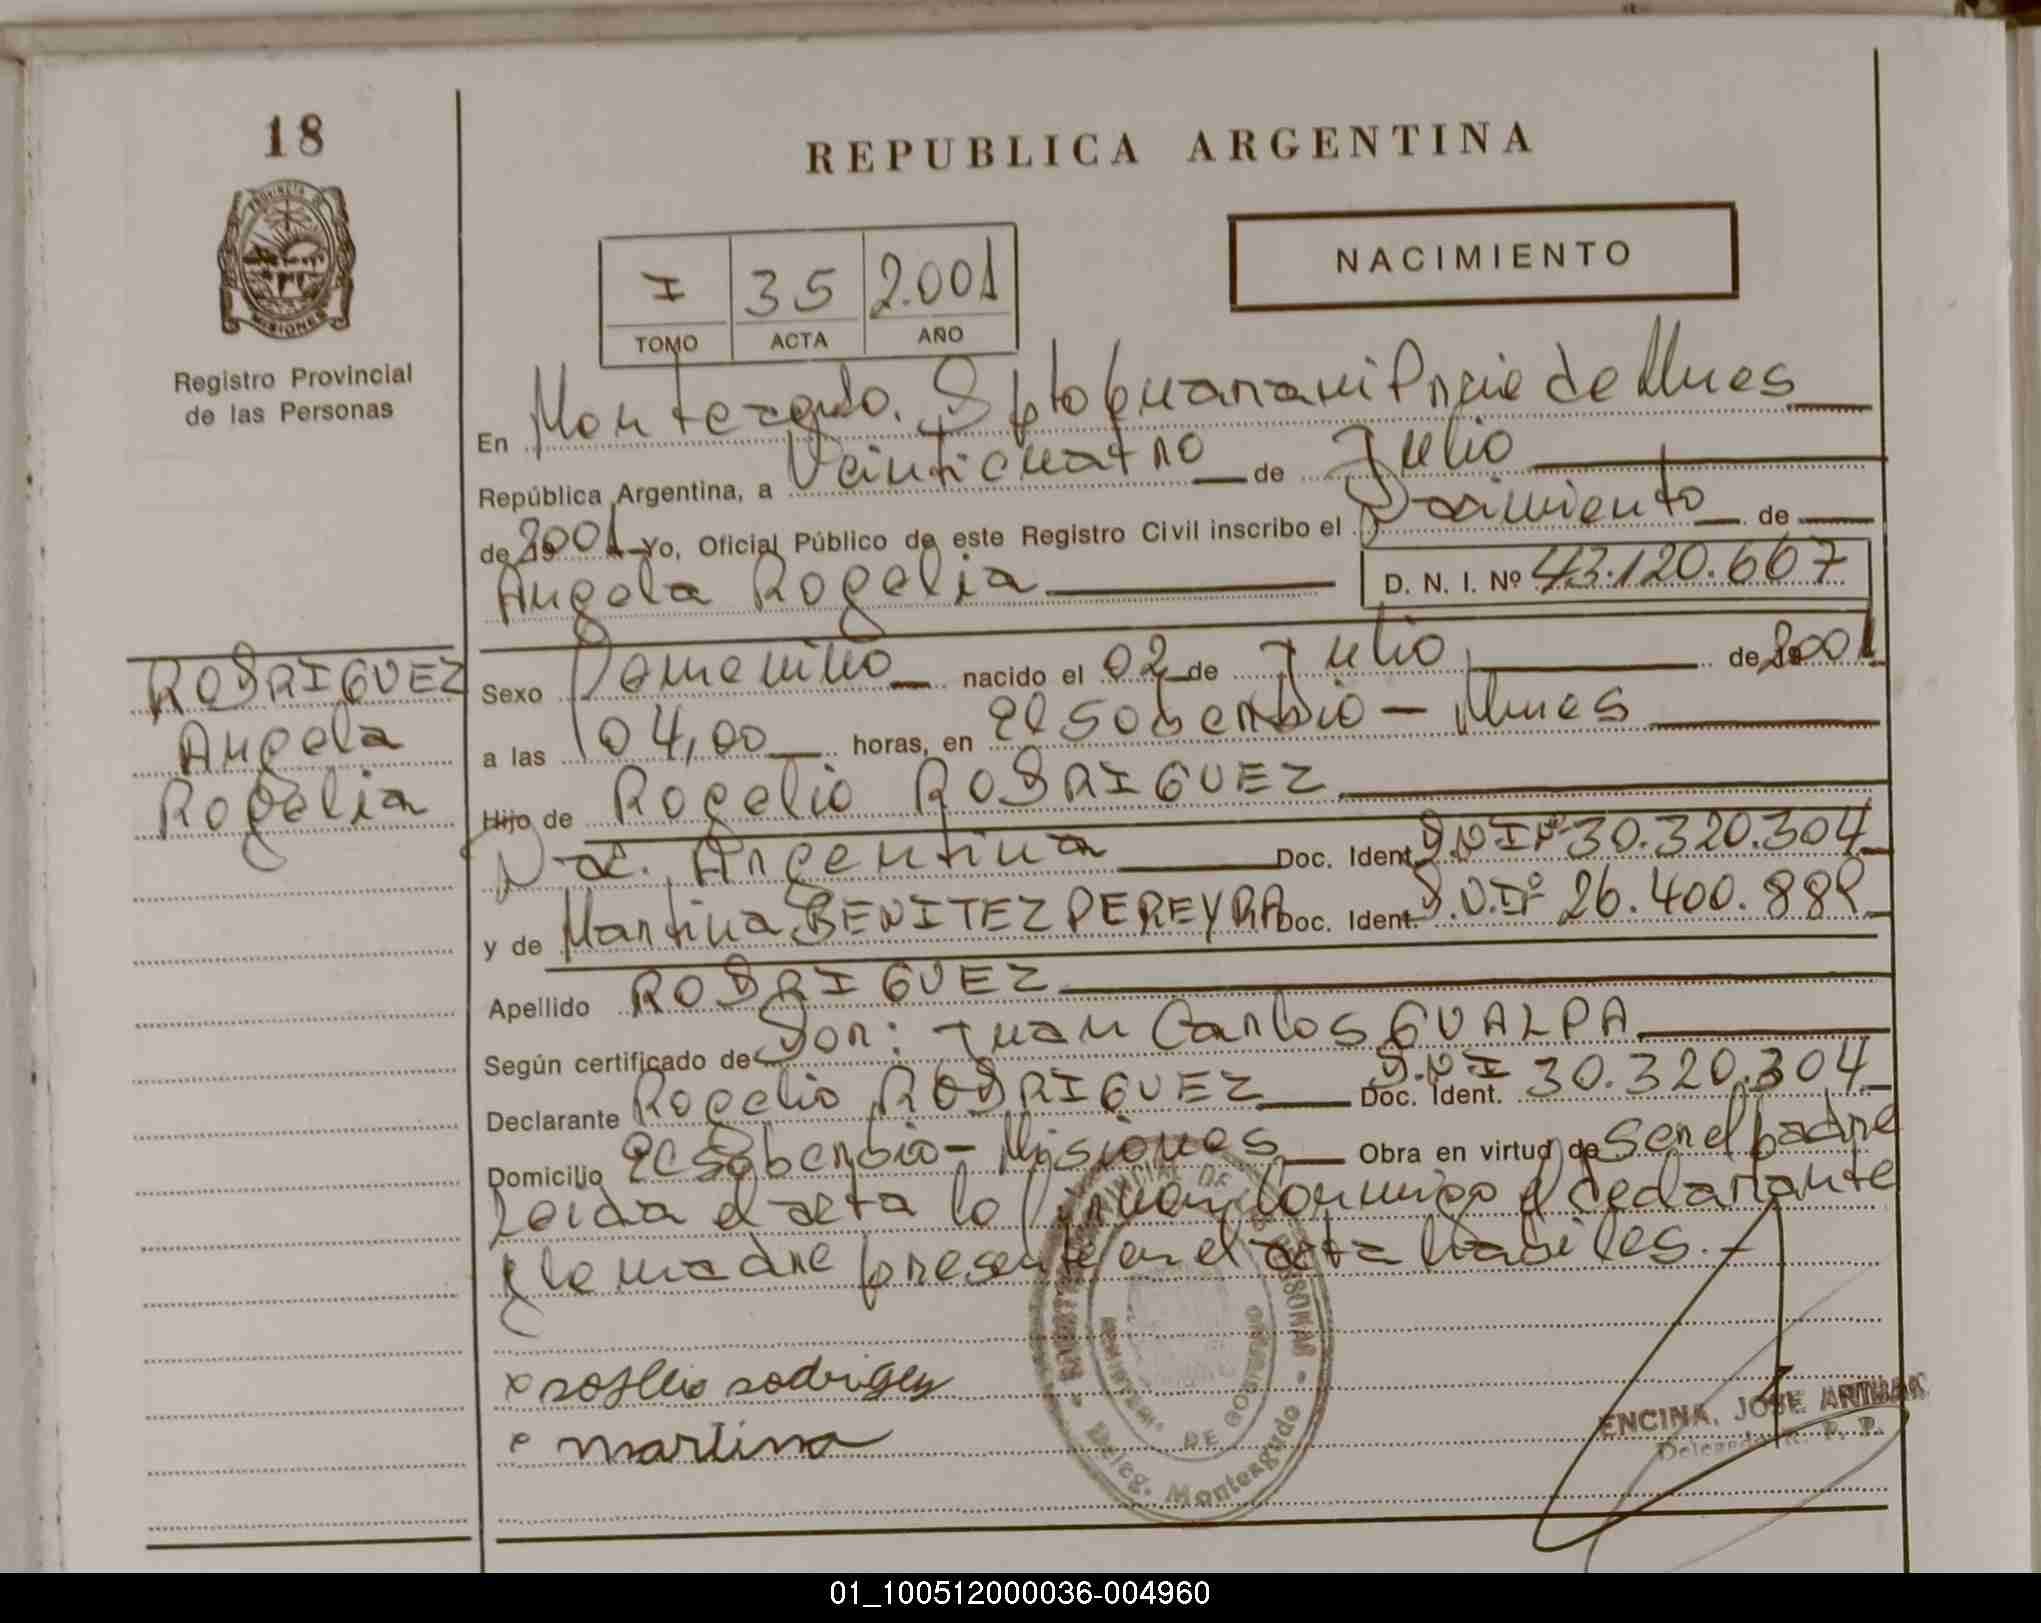 18
REPUBLICA ARGENTINA
PROVINCIA D
MISIONES
Registro Provincial
de las Personas
NACIMIENTO
I 35 2.001
TOMO ACTA AÑO
En Monteagudo. Dpto Guarani Pncie de Mnes
República Argentina, a Veinticuatro de Julio
de 2001 Yo, Oficial Público de este Registro Civil inscribo el Nacimiento de
Angela Rogelia D. N. I. Nº 43.120.667
RODRIGUEZ
Angela
Rogelia
Sexo Femenino nacido el 02 de Julio de 2001
a las 04,00 horas, en El Soberbio - Mnes
Hijo de Rogelio RODRIGUEZ
Nac. Argentina Doc. Ident. D.N.I Nº 30.320.304
y de Martina BENITEZ PEREYRA Doc. Ident. D.N.Iº 26.400.888
Apellido RODRIGUEZ
Según certificado de Dor: Juan Carlos GUALPA
Declarante Rogelio RODRIGUEZ Doc. Ident. D.N.I 30.320.304
Domicilio El Soberbio - Misiones Obra en virtud de ser el padre
Leida el acta la firman conmigo el declarante
y la madre presente en el acta habiles.-
x rogleio rodrigez
martina
PROVINCIAL DE PERSONAS
DE GOBIERNO
Deleg. Monteagudo
ENCINA, JOSE ANIBAL
Delegado R. P. P.
01_100512000036-004960